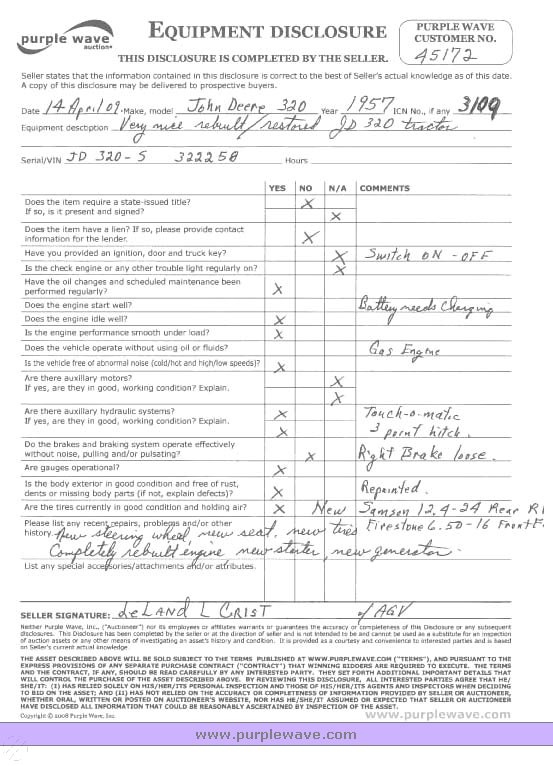 purple wave
auction®
EQUIPMENT DISCLOSURE
THIS DISCLOSURE IS COMPLETED BY THE SELLER.
PURPLE WAVE
CUSTOMER NO.
45172
Seller states that the information contained in this disclosure is correct to the best of Seller's actual knowledge as of this date.
A copy of this disclosure may be delivered to prospective buyers.
Date 14 April 09 Make, model John Deere 320 Year 1957 ICN No., if any 3109
Equipment desctiption Very nice rebuilt/restored JD 320 tractor
Serial/VIN JD 320-S 322258 Hours
YES NO N/A COMMENTS
Does the item require a state-issued title? X
If so, is it present and signed? X
Does the item have a lien? If so, please provide contact
information for the lender. X
Have you provided an ignition, door and truck key? X Switch ON - OFF
Is the check engine or any other trouble light regularly on? X
Have the oil changes and scheduled maintenance been
performed regularly? X
Does the engine start well? Battery needs Charging
Does the engine idle well? X
Is the engine performance smooth under load? X
Does the vehicle operate without using oil or fluids? Gas Engine
Is the vehicle free of abnormal noise (cold/hot and high/low speeds)? X
Are there auxillary motors? X
If yes, are they in good, working condition? Explain. X
Are there auxillary hydraulic systems? X Touch-o-matic
If yes, are they in good, working condition? Explain. X 3 point hitch.
Do the brakes and braking system operate effectively
without noise, pulling and/or pulsating? X Right Brake loose.
Are gauges operational? X
Is the body exterior in good condition and free of rust,
dents or missing body parts (if not, explain defects)? X Repainted.
Are the tires currently in good condition and holding air? X New Samson 12.4-24 Rear R
Please list any recent repairs, problems and/or other
history. New steering wheel, new seat, new tires Firestone 6.50-16 Front F
Completely rebuilt engine new starter, new generator.
List any special accessories/attachments and/or attributes.
SELLER SIGNATURE: LeLAND L CRIST w/AGV
Neither Purple Wave, Inc. ("Auctioneer") nor its employees or affiliates warrants or guarantees the accuracy or completeness of this Disclosure or any subsequent
disclosures. This Disclosure has been completed by the seller or at the direction of seller and is not intended to be and cannot be used as a substitute for an inspection
of auction assets or any other means of investigating an asset's history and condition. It is provided as a courtesy and convenience to interested parties and is based
on Seller's current actual knowledge.
THE ASSET DESCRIBED ABOVE WILL BE SOLD SUBJECT TO THE TERMS PUBLISHED AT WWW.PURPLEWAVE.COM ("TERMS"), AND PURSUANT TO THE
EXPRESS PROVISIONS OF ANY SEPARATE PURCHASE CONTRACT ("CONTRACT") THAT WINNING BIDDERS ARE REQUIRED TO EXECUTE. THE TERMS
AND THE CONTRACT, IF ANY, SHOULD BE READ CAREFULLY BY ANY INTERESTED PARTY. THEY SET FORTH ADDITIONAL IMPORTANT DETAILS THAT
WILL CONTROL THE PURCHASE OF THE ASSET DESCRIBED ABOVE. BY REVIEWING THIS DISCLOSURE, ALL INTERESTED PARTIES AGREE THAT HE/
SHE/IT: (I) HAS RELIED SOLELY ON HIS/HER/ITS PERSONAL INSPECTION AND THOSE OF HIS/HER/ITS AGENTS AND INSPECTORS WHEN DECIDING
TO BID ON THE ASSET; AND (II) HAS NOT RELIED ON THE ACCURACY OR COMPLETENESS OF INFORMATION PROVIDED BY SELLER OR AUCTIONEER,
WHETHER ORAL, WRITTEN OR POSTED ON AUCTIONEER'S WEBSITE, NOR HAS HE/SHE/IT ASSUMED OR EXPECTED THAT SELLER OR AUCTIONEER
HAVE DISCLOSED ALL INFORMATION THAT COULD BE REASONABLY ASCERTAINED BY INSPECTION OF THE ASSET.
Copyright © 2008 Purple Wave, Inc.
www.purplewave.com
www.purplewave.com